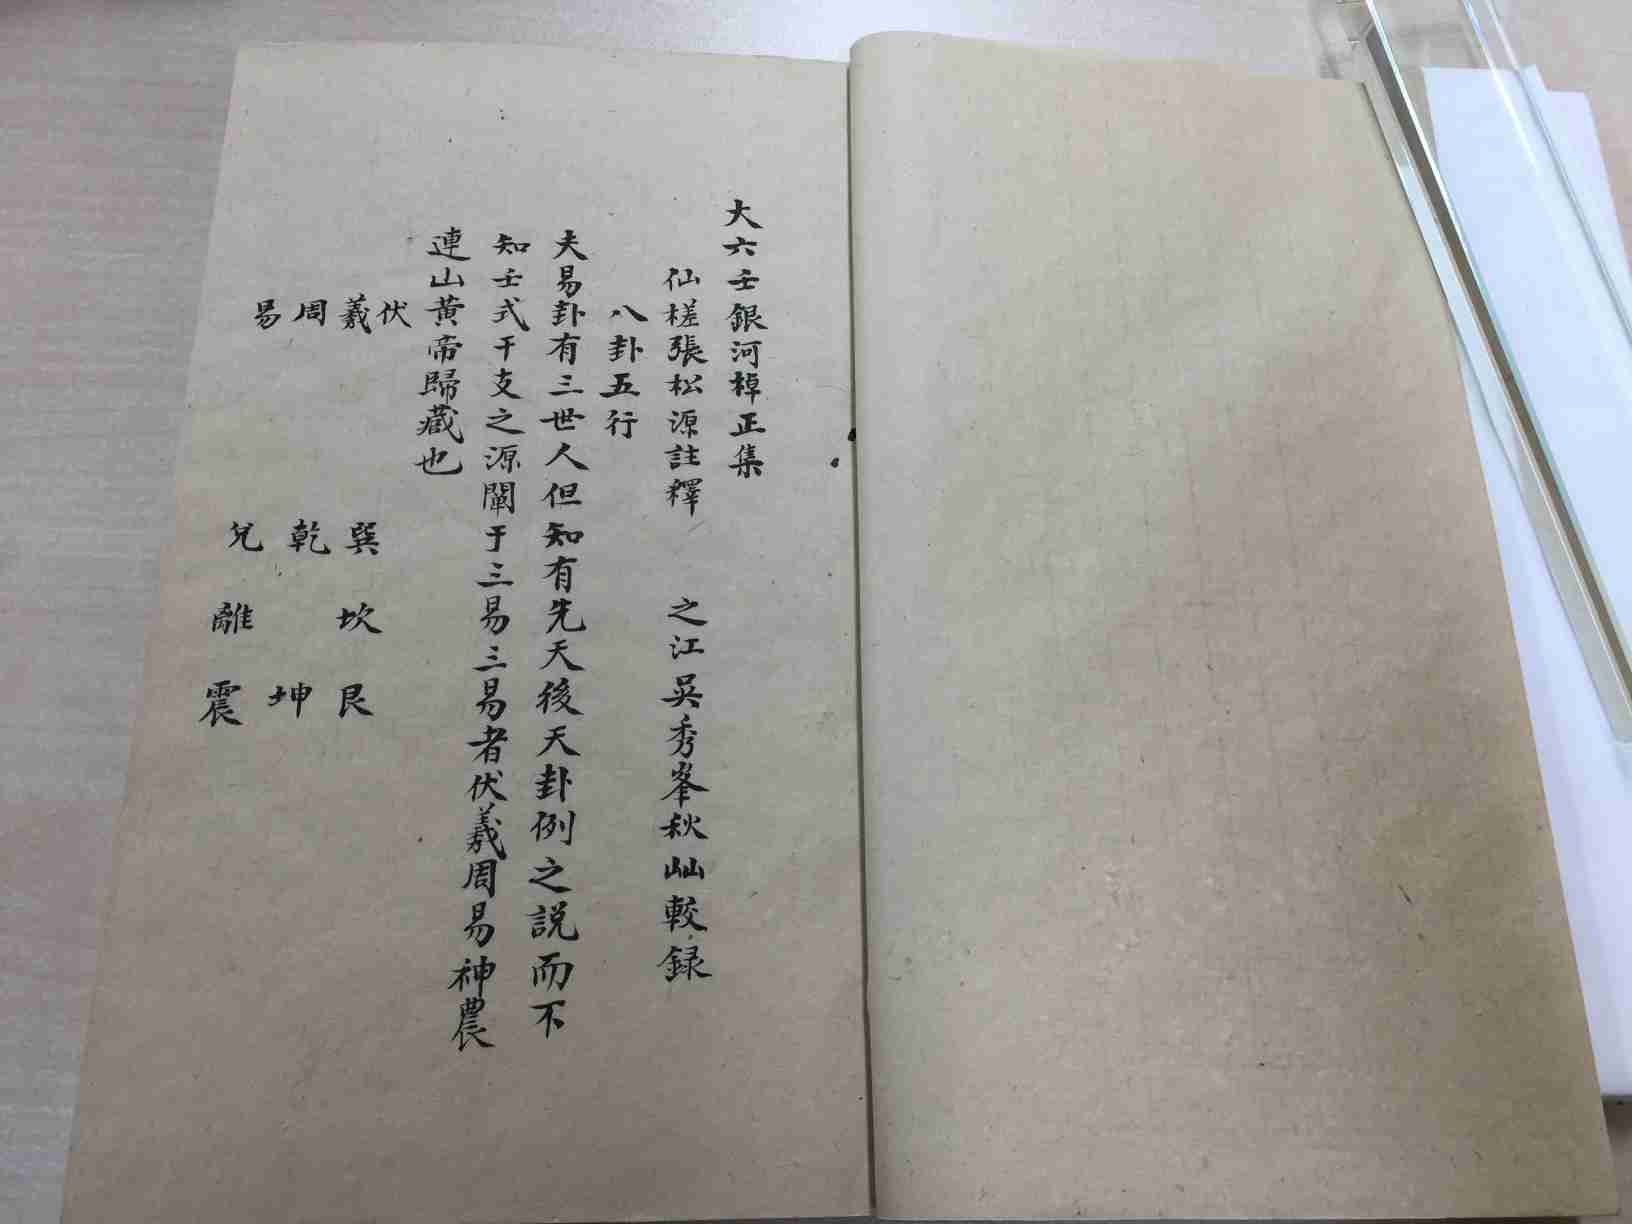 大六壬銀河棹正集
仙槎張松源註釋　之江吳秀峯秋屾較錄
八卦五行
夫易卦有三世人但知有先天後天卦例之説而不
知壬式干支之源闡于三易三易者伏羲周易神農
連山黃帝歸藏也
伏羲周易
巽坎艮
乾坤
兌離震